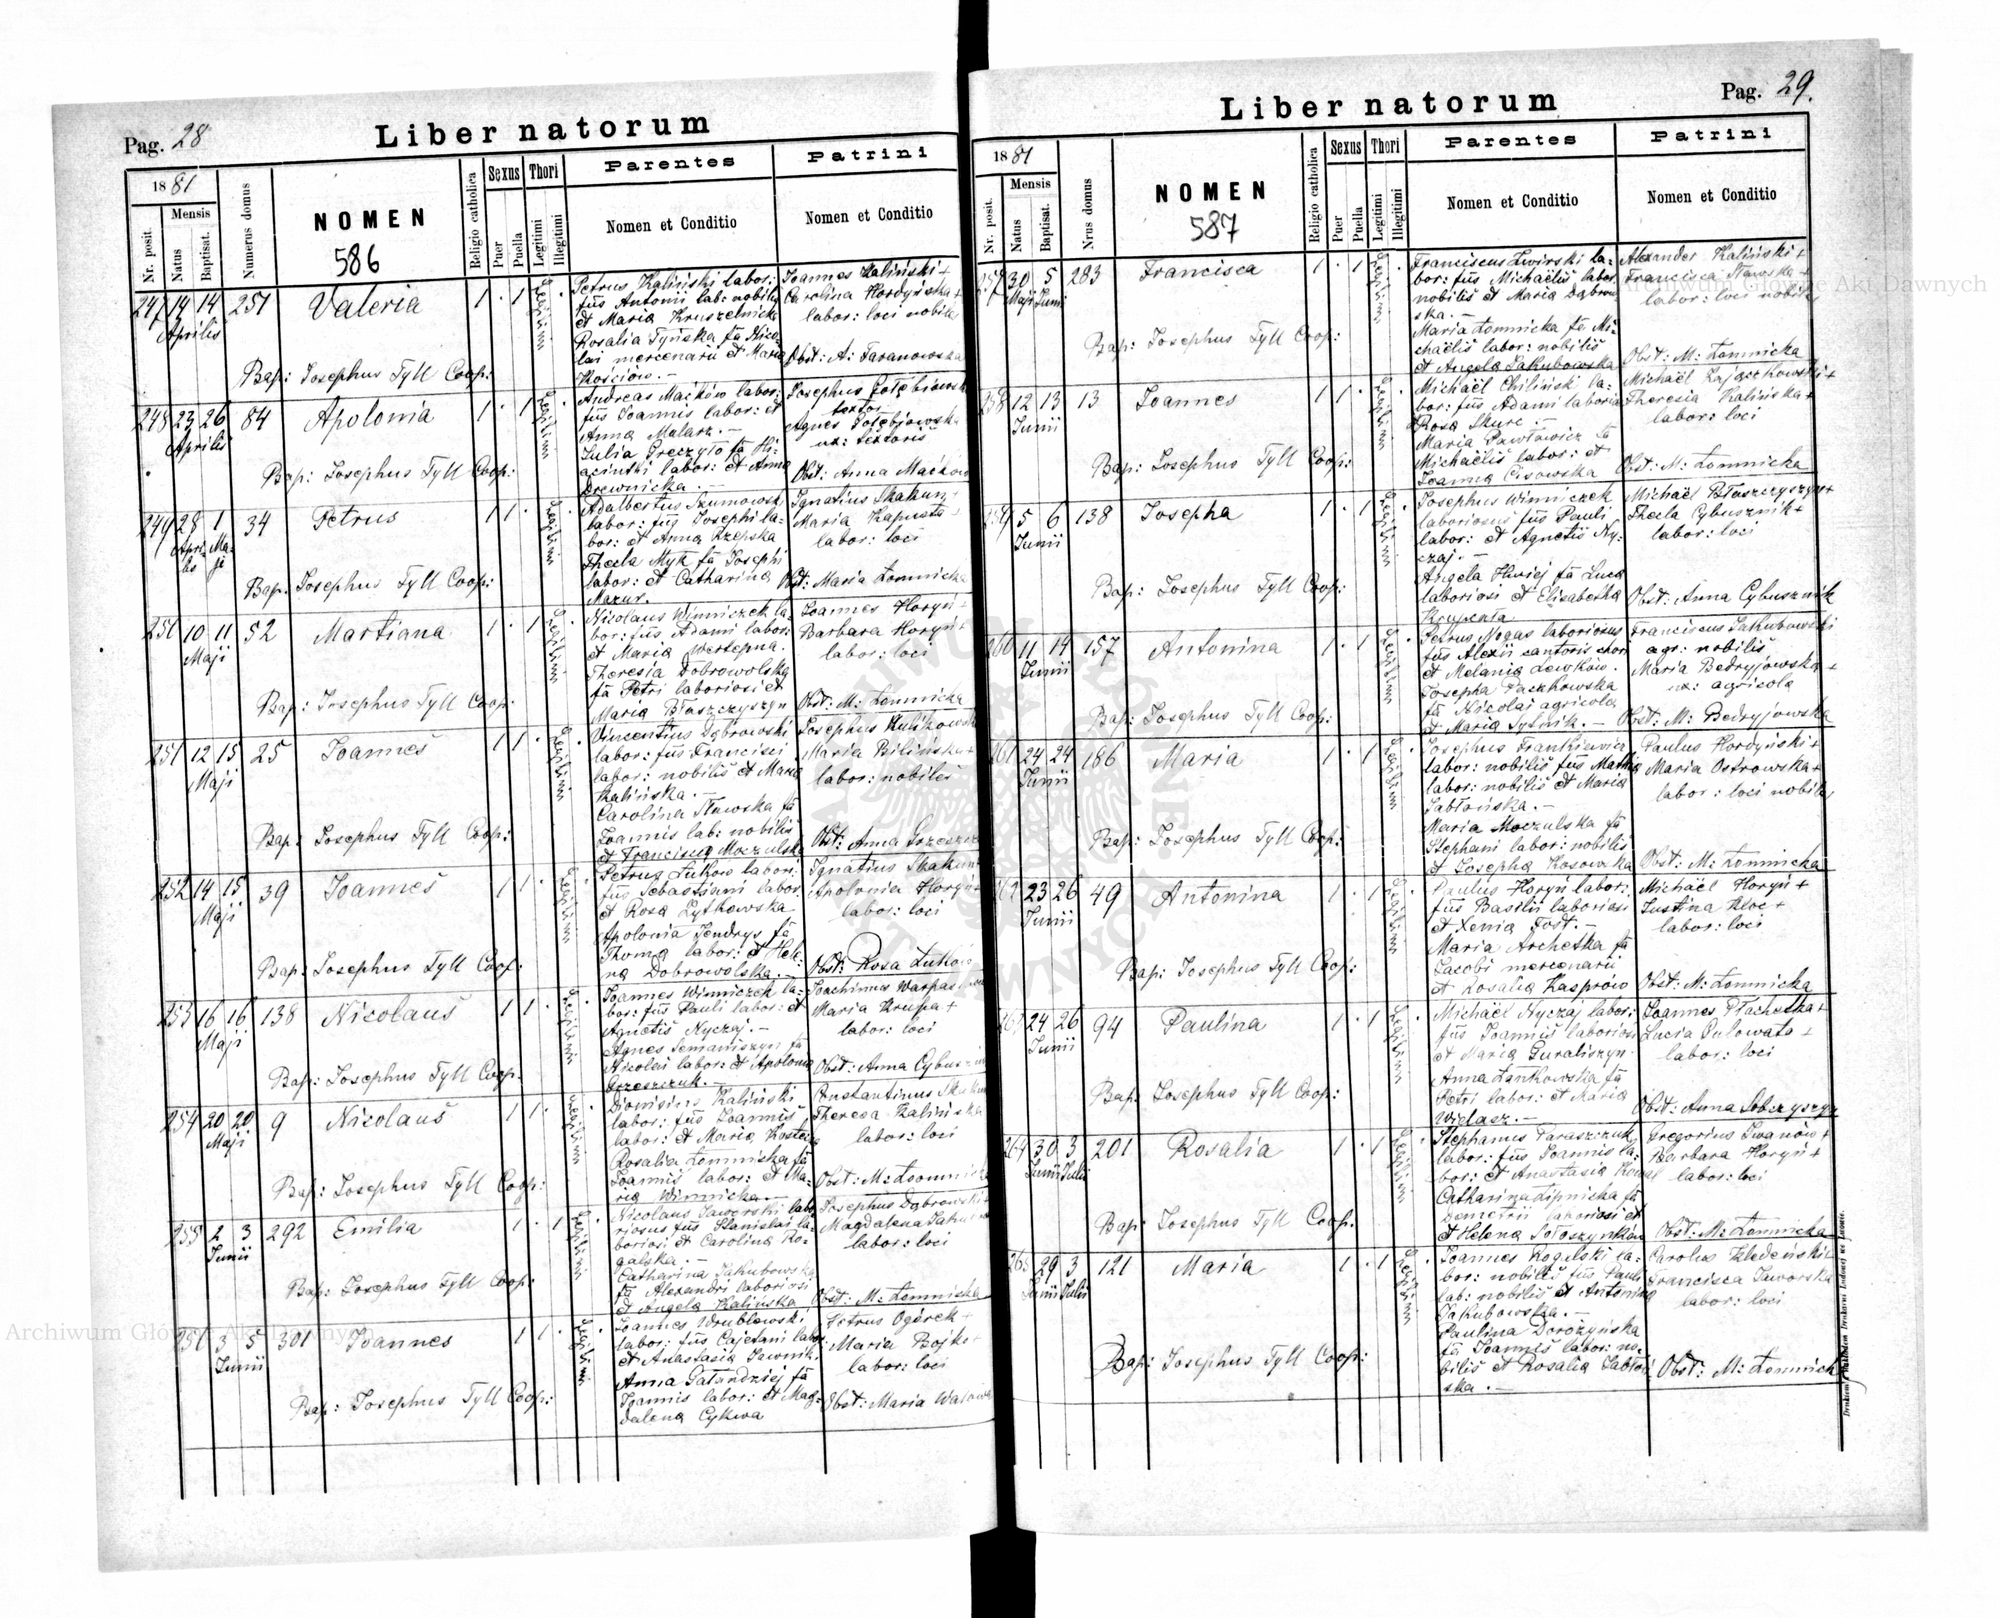 Pag. 28
Liber natorum
1881
Nr. posit.
Mensis
Natus
Baptisat.
Numerus domus
NOMEN
586
Religio catholica
Sexus
Puer
Puella
Thori
Legitimi
Illegitimi
Parentes
Nomen et Conditio
Patrini
Nomen et Conditio
247 14 14 251 Valeria 1 . 1
Aprilis
Petrus Kaliński labor:
fus Antonii lab: nobilis
et Maria Kruszelnicka
Rosalia Tyńska fa Nico
lai mercenarii et Maria
Kościów. —
Joannes Kaliński +
Carolina Hordyńska +
labor: loci nobiles
Obst: A: Taranowska
Bap: Josephus Tyll Coop:
248 23 26 84 Apolonia 1 . 1
Aprilis
Andreas Maćków labor:
fus Joannis labor: et
Anna Malarz. —
Julia Greczyło fa Hy-
acinthi labor: et Anna
Drewnicka. —
Josephus Gołębiowski
textor
Agnes Gołębiowska
ux: textoris
Obst: Anna Maćków
Bap: Josephus Tyll Coop:
249 28 1 34 Petrus 1 1 .
Apri- Ma-
lis ji
Adalbertus Szumowski
labor: fus Josephi la-
bor: et Anna Rzepska
Thecla Myk fa Josephi
labor: et Catharina
Mazur.
Ignatius Skakun +
Maria Kapusta +
labor: loci
Obst: Maria Łomnicka
Bap: Josephus Tyll Coop:
250 10 11 52 Martiana 1 . 1
Maji
Nicolaus Winniczek la-
bor: fus Adami labor:
et Maria Wertepna.
Theresia Dobrowolska
fa Petri laboriosi et
Maria Błaszczyszyn
Joannes Horyń +
Barbara Horyń +
labor: loci
Obst: M: Łomnicka
Bap: Josephus Tyll Coop:
251 12 15 25 Joannes 1 1 .
Maji
Vincentius Dąbrowski
labor: fus Francisci
labor: nobilis et Maria
Kalińska. —
Carolina Stawska fa
Joannis lab: nobilis
et Francisca Moczulska
Josephus Kulikowski
Maria Bilińska +
labor: nobiles
Obst: Anna Grzeszczuk
Bap: Josephus Tyll Coop:
252 14 15 39 Joannes 1 1 .
Maji
Petrus Łuków labor:
fus Sebastiani labor
et Rosa Lytkowska
Apolonia Jendrys fa
Thoma labor: et Hele-
na Dobrowolska. —
Ignatius Skakun
Apolonia Horyń +
labor: loci
Obst: Rosa Łuków
Bap: Josephus Tyll Coop:
253 16 16 138 Nicolaus 1 1 .
Maji
Joannes Winniczek la-
bor: fus Pauli labor: et
Agnetis Nyczaj. —
Agnes Semaniszyn fa
Nicolai labor: et Apolonia
Grzeszczuk. —
Joachimus
Maria Krupa +
labor: loci
Obst: Anna Cybusznik
Bap: Josephus Tyll Coop:
254 20 20 9 Nicolaus 1 1 .
Maji
Dionisius Kaliński
labor: fus Joannis
labor: et Maria
Rosalia Łomnicka fa
Joannis labor: et Ma-
ria Winnicka —
Constantinus Skakun
Theresa Kalińska
labor: loci
Obst: M: Łomnicka
Bap: Josephus Tyll Coop:
255 2 3 292 Emilia 1 . 1
Junii
Nicolaus Jaworski labo
riosus fus Stanislai la-
boriosi et Carolina Ro-
galska. —
Catharina Jakubowska
fa Alexandri laboriosi
et Angela Kalińska
Josephus Dąbrowski +
Magdalena
labor: loci
Obst: M: Łomnicka
Bap: Josephus Tyll Coop:
256 3 5 301 Joannes 1 1 .
Junii
Joannes Wrublewski
labor: fus Cajetani labor
et Anastasia Jawnik.
Anna Gałandziej fa
Joannis labor: et Mag-
dalena Cykwa
Petrus Ogórek +
Maria Bojko +
labor: loci
Obst: Maria
Bap: Josephus Tyll Coop:
Pag. 29.
Liber natorum
1881
Nr. posit.
Mensis
Natus
Baptisat.
Nrus domus
NOMEN
587
Religio catholica
Sexus
Puer
Puella
Thori
Legitimi
Illegitimi
Parentes
Nomen et Conditio
Patrini
Nomen et Conditio
257 30 5 283 Francisca 1 . 1
Maji Junii
Franciscus Zwirski la-
bor: fus Michaëlis labor
nobilis et Maria Dąbrow
ska. —
Maria Łomnicka fa Mi-
chaëlis labor: nobilis
et Angela Jakubowska
Alexander Kaliński +
Francisca Stawska +
labor: loci nobiles
Obst: M: Łomnicka
Bap: Josephus Tyll Coop:
258 12 13 13 Joannes 1 1 .
Junii
Michaël Chiliński la-
bor: fus Adami laboriosi
Rosa Skurc. —
Maria Pawłowicz fa
Michaëlis labor: et
Joanna Cisowska
Michaël Zajączkowski +
Theresia Kalińska +
labor: loci
Obst: M: Łomnicka
Bap: Josephus Tyll Coop:
259 5 6 138 Josepha 1 . 1
Junii
Josephus Winniczek
laboriosus fus Pauli
labor: et Agnetis Ny-
czaj. —
Angela Hwiej fa Luca
laboriosi et Elisabetha
Krupenia
Michaël Błaszczyszyn +
Thecla Cybusznik +
labor: loci
Obst: Anna Cybusznik
Bap: Josephus Tyll Coop:
260 11 14 157 Antonina 1 . 1
Junii
Petrus Nogas laboriosus
fus Alexii cantoris chori
et Melania Lewków.
Josepha Paczkowska
fa Nicolai agricola
et Maria Sytnik. —
Franciscus Jakubowski
agr: nobilis
Maria Bedryjowska +
ux: agricola
Obst: M: Bedryjowska
Bap: Josephus Tyll Coop:
261 24 24 186 Maria 1 . 1
Junii
Josephus Frankiewicz
labor: nobilis fus Mathia
labor: nobilis et Maria
Jabłońska. —
Maria Moczulska fa
Stephani labor: nobilis
et Josepha Kosowska
Paulus Hordyński +
Maria Ostrowska +
labor: loci nobiles
Obst: M: Łomnicka
Bap: Josephus Tyll Coop:
262 23 26 49 Antonina 1 . 1
Junii
Paulus Horyń labor:
fus Basilii laboriosi
et Xenia Fost. —
Maria Archetka fa
Jacobi mercenarii
et Rosalia Kasprow
Michaël Horyń +
Justina Kloc +
labor: loci
Obst: M: Łomnicka
Bap: Josephus Tyll Coop:
263 24 26 94 Paulina 1 . 1
Junii
Michaël Nyczaj labor:
fus Joannis laboriosi
et Maria Guraliszyn.
Anna Łankowska fa
Petri labor: et Maria
Widasz. —
Joannes Płachetka +
Lucia Pulowata +
labor: loci
Obst: Anna Sobczyszyn
Bap: Josephus Tyll Coop:
264 30 3 201 Rosalia 1 . 1
Junii Julii
Stephanus Paraszczuk
labor: fus Joannis la-
bor: et Anastasia Kowal
Catharina Lipnicka fa
Demetrii laboriosi et
et Helena Sołoszynkian
Gregorius Iwanów +
Barbara Horyń +
labor: loci
Obst: M: Łomnicka
Bap: Josephus Tyll Coop:
265 29 3 121 Maria 1 . 1
Junii Julii
Joannes Rogalski la-
bor: nobilis fus Pauli
lab: nobilis et Antonina
Jakubowska. —
Paulina Dorożyńska
fa Joannis labor: no-
bilis et Rosalia Jabłoń
ska. —
Carolus
Francisca Jaworska
labor: loci
Obst: M: Łomnick
Bap: Josephus Tyll Coop:
Archiwum Główne Akt Dawnych
Archiwum Główne Akt Dawnych